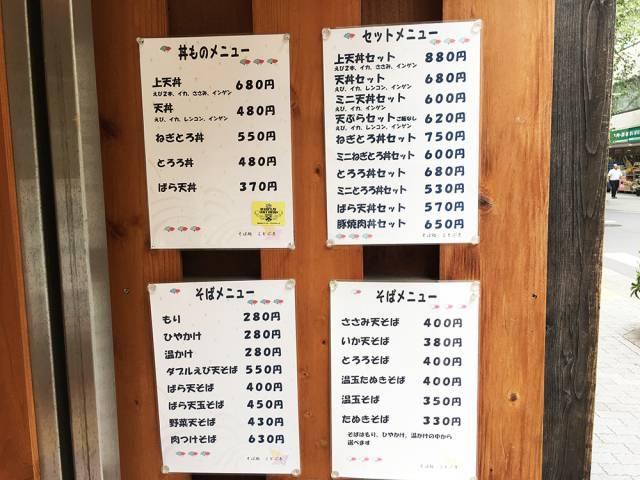 丼ものメニュー
上天丼 680円
えび2本、イカ、ささみ、インゲン
天丼 480円
えび、イカ、レンコン、インゲン
ねぎとろ丼 550円
とろろ丼 480円
ばら天丼 370円
セットメニュー
上天丼セット 880円
えび2本、イカ、ささみ、インゲン
天丼セット 680円
えび、イカ、レンコン、インゲン
ミニ天丼セット 600円
えび、イカ、インゲン
天ぷらセット ご飯なし 620円
えび、イカ、レンコン、インゲン
ねぎとろ丼セット 750円
ミニねぎとろ丼セット 600円
とろろ丼セット 680円
ミニとろろ丼セット 530円
ばら天丼セット 570円
豚焼肉丼セット 650円
そばメニュー
もり 280円
ひやかけ 280円
温かけ 280円
ダブルえび天そば 550円
ばら天そば 400円
ばら天玉そば 450円
野菜天そば 430円
肉つけそば 630円
そばメニュー
ささみ天そば 400円
いか天そば 380円
とろろそば 400円
温玉たぬきそば 400円
温玉そば 350円
たぬきそば 330円
そばはもり、ひやかけ、温かけの中から
選べます